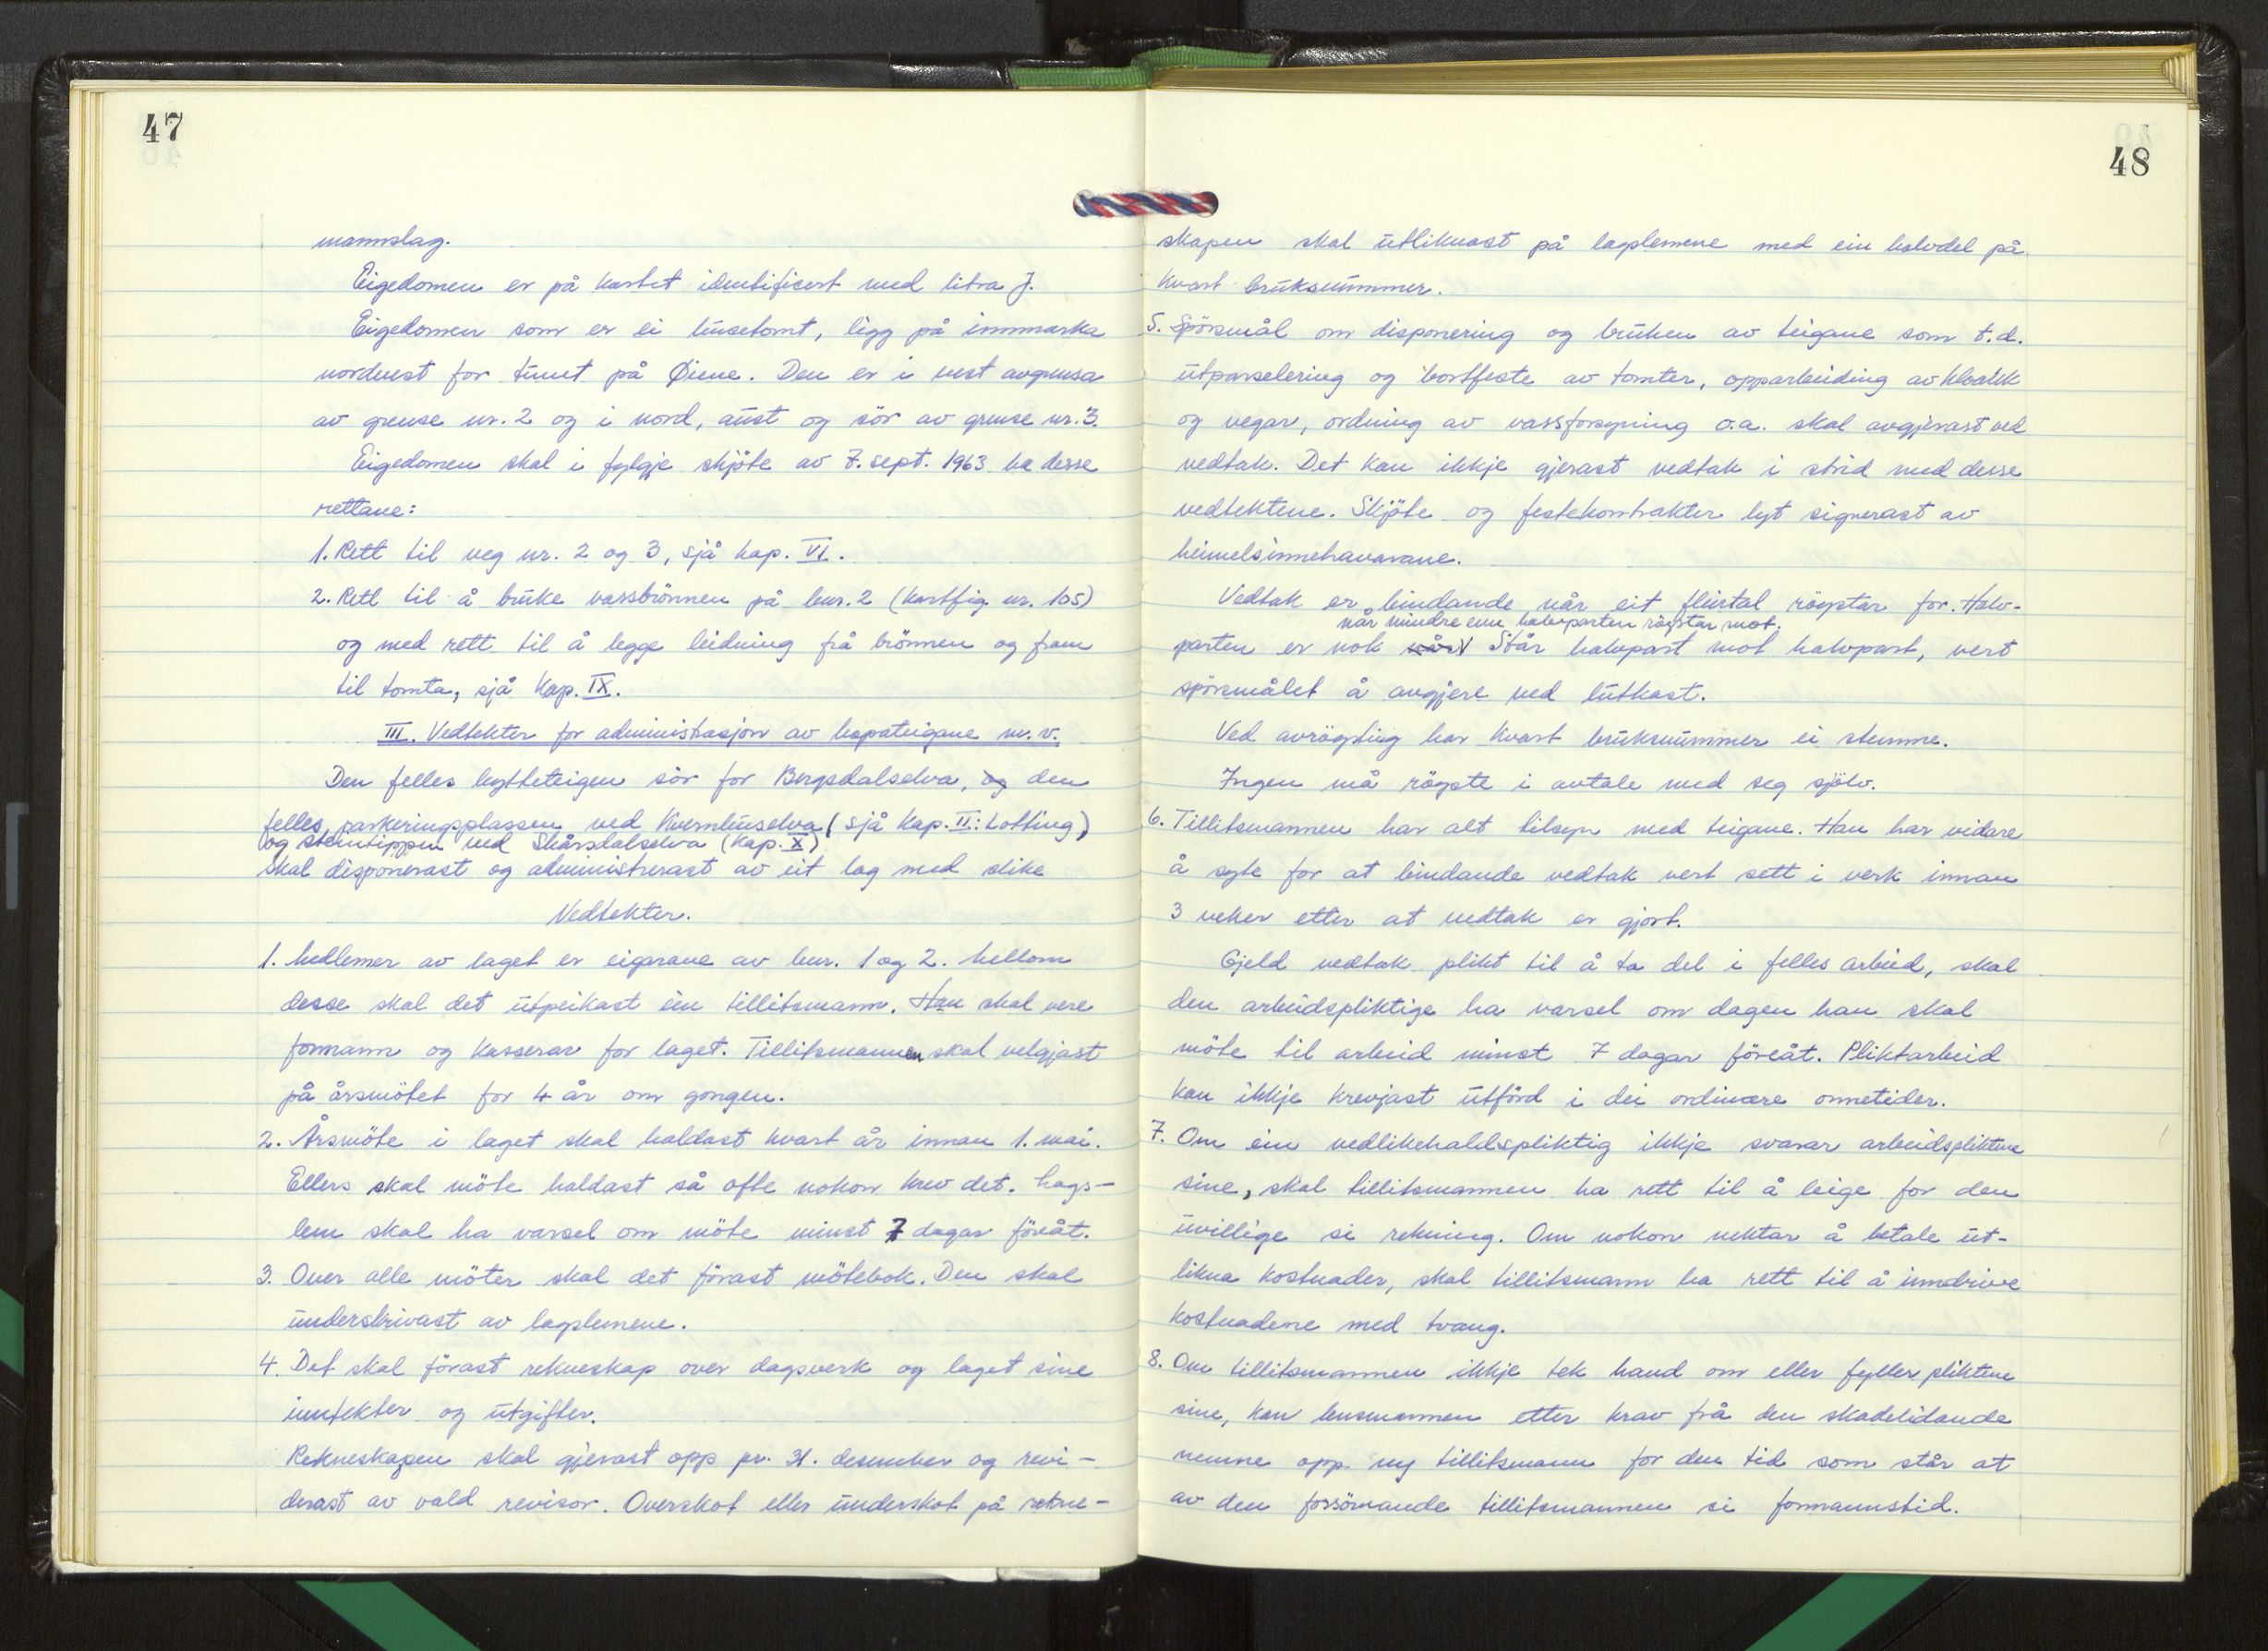 47
mannslag.
Eigedomen er på kartet identifisert med litra J.
Eigedomen som er ei husetomt, ligg på innmarka
nordvest for tunet på Øiene. Den er i vest avgrensa
av grense nr. 2 og i nord, aust og sör av grense nr. 3.
Eigedomen skal i fylgje skjöte av 7. sept. 1963 ha desse
rettane:
1. Rett til veg nr. 2 og 3, sjå kap. VI.
2. Rett til å bruke vassbrönnen på bnr. 2 (kartfig. nr. 105)
og med rett til å legge leidning frå brönnen og fram
til tomta, sjå kap. IX.
III. Vedtekter for administrasjon av hopateigane m.v.
Den felles hytteteigen sör for Bergsdalselva, og den
felles parkeringsplassen ved Kvernhuselva (sjå kap. II: Lotting)
og steintippen ved Skårsdalselva (kap. X)
skal disponerast og administrerast av eit lag med slike
Vedtekter.
1. Medlemer av laget er eigarane av bnr. 1 og 2. Mellom
desse skal det utpeikast ein tillitsmann. Han skal vere
formann og kasserar for laget. Tillitsmannen skal velgjast
på årsmötet for 4 år om gongen.
2. Årsmöte i laget skal haldast kvart år innan 1. mai.
Ellers skal möte haldast så ofte nokon krev det. Lags-
lem skal ha varsel om möte minst 7 dagar föreåt.
3. Over alle möter skal det förast mötebok. Den skal
underskrivast av lagslemene.
4. Det skal förast rekneskap over dagsverk og laget sine
inntekter og utgifter.
Rekneskapen skal gjerast opp pr. 31. desember og revi-
derast av vald revisor. Overskot eller underskot på rekne-
48
skapen skal utliknast på lagslemene med ein halvdel på
kvart bruksnummer.
5. Spörsmål om disponering og bruken av teigane som t.d.
utparselering og bortfeste av tomter, opparbeiding av kloakk
og vegar, ordning av vassforsyning o.a. skal avgjerast ved
vedtak. Det kan ikkje gjerast vedtak i strid med desse
vedtektene. Skjöte og festekontrakter lyt signerast av
heimelsinnehavarane.
Vedtak er bindande når eit fleirtal röystar for. Halv-
når mindre enn halvparten röystar mot.
parten er nok når Står halvpart mot halvpart, vert
spörsmålet å avgjere ved lutkast.
Ved avröysting har kvart bruksnummer ei stemme.
Ingen må röyste i avtale med seg sjölv.
6. Tillitsmannen har alt tilsyn med teigane. Han har vidare
å syte for at bindande vedtak vert sett i verk innan
3 veker etter at vedtak er gjort.
Gjeld vedtak plikt til å ta del i felles arbeid, skal
den arbeidspliktige ha varsel om dagen han skal
möte til arbeid minst 7 dagar föreåt. Pliktarbeid
kan ikkje krevjast utförd i dei ordinære onnetider.
7. Om ein vedlikehaldspliktig ikkje svarar arbeidspliktene
sine, skal tillitsmannen ha rett til å leige for den
uvillige si rekning. Om nokon nektar å betale ut-
likna kostnader, skal tillitsmann ha rett til å inndrive
kostnadene med tvang.
8. Om tillitsmannen ikkje tek hand om eller fyller pliktene
sine, kan lensmannen etter krav frå den skadelidande
nemne opp ny tillitsmann for den tid som står at
av den forsömande tillitsmannen si formannstid.